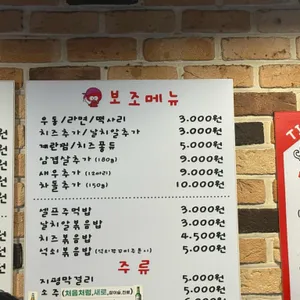 보조메뉴
우동/라면/떡사리 3.000원
치즈추가/날치알추가 3.000원
계란찜/치즈퐁듀 5.000원
삼겹살추가 (180g) 9.000원
새우추가 (12마리) 9.000원
차돌추가 (150g) 10.000원
셀프주먹밥 3.000원
날치알볶음밥 3.000원
치즈볶음밥 4.500원
5.000원
주류
지평막걸리 5.000원
소주 (처음처럼,새로, 5.000원
원
원
원
원